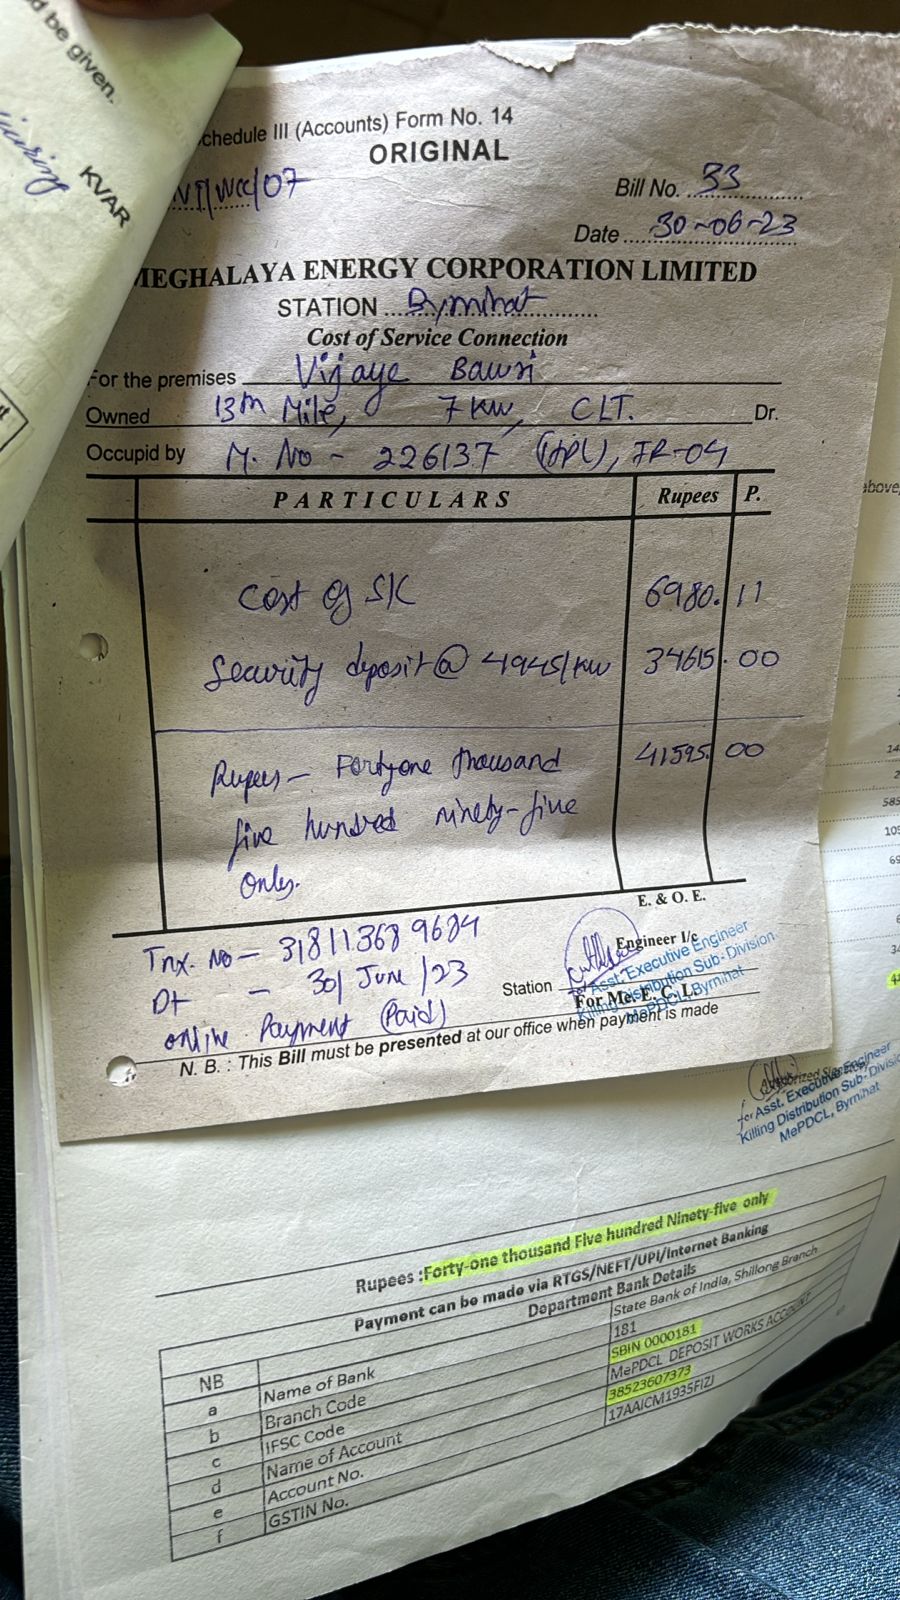 d be given.
KVAR
chedule III (Accounts) Form No. 14
ORIGINAL
/WCC/07
Bill No. 33
Date 30-06-23
MEGHALAYA ENERGY CORPORATION LIMITED
STATION Byrnihat
Cost of Service Connection
For the premises Vijaye Bawri
Owned 13th Mile, 7 KW, CLT. Dr.
Occupid by M. No - 226137 (HPL), IR-04
PARTICULARS Rupees P.
Cost of S/C 6980. 11
Security deposit @ 4945/KW 34615. 00
Rupees - Fortyone thousand 41595. 00
five hundred ninety-five
Only.
E. & O. E.
Tnx. No - 318113689684
Dt - 30/June/23
online Payment (Paid)
Engineer I/c
Station
For Me. E. C. L.
for Asst. Executive Engineer
Killing Distribution Sub-Division
MePDCL, Byrnihat
N. B. : This Bill must be presented at our office when payment is made
above,
14
2
585
105
69
Authorized Signatory
for Asst. Executive Engineer
Killing Distribution Sub-Divisio
MePDCL, Byrnihat
Rupees :Forty-one thousand Five hundred Ninety-five only
Payment can be made via RTGS/NEFT/UPI/Internet Banking
NB Department Bank Details
a Name of Bank State Bank of India, Shillong Branch
b Branch Code 181
c IFSC Code SBIN 0000181
d Name of Account MePDCL DEPOSIT WORKS ACCOUNT
e Account No. 38523607373
f GSTIN No. 17AAICM1935FIZJ